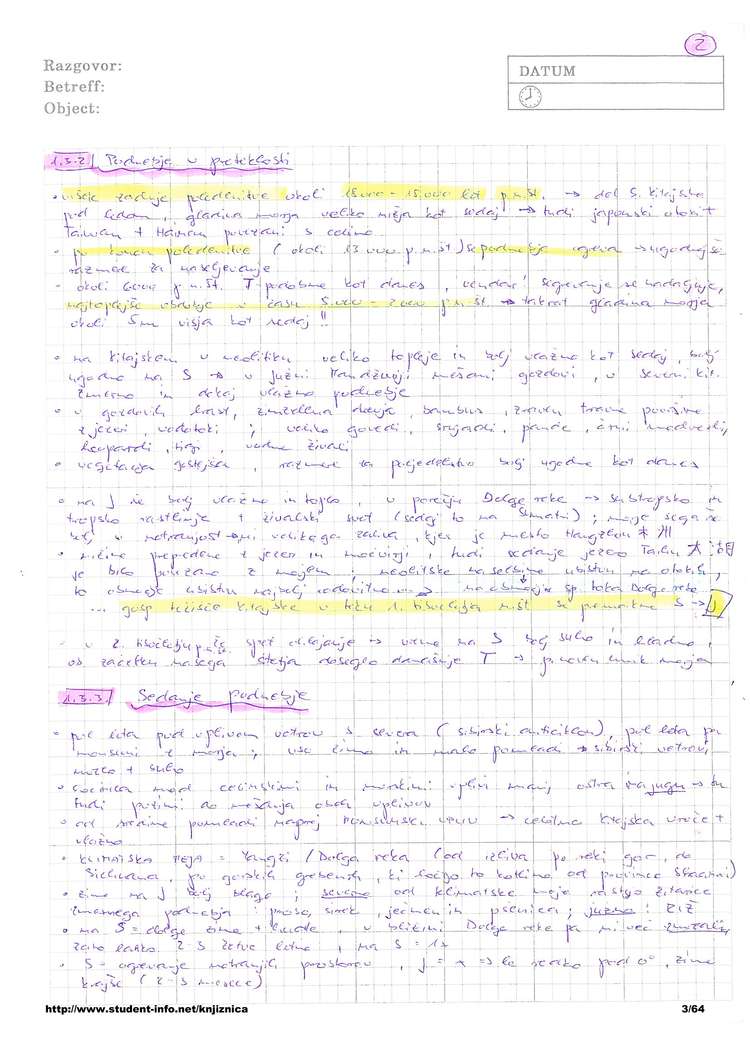 2
Razgovor:
Betreff:
Object:
DATUM
1.3.2. Podnebje v preteklosti
• višek zadnje poledenitve okoli 18.000 - 15.000 let p.n.št. → del S. Kitajske
pod ledom, gladina morja veliko nižja kot sedaj → tudi japonski otoki +
Taiwan + Hainan povezani s celino
• po koncu poledenitve (okoli 13.000 p.n.št) se podnebje ogreva → ugodnejše
razmere za naseljevanje
• okoli 6000 p.n.št. T podobne kot danes, vendar segrevanje se nadaljuje,
najtoplejše obdobje v času 5.000 - 2000 p.n.št. → takrat gladina morja
okoli 5m višja kot sedaj !!
• na Kitajskem v neolitiku veliko topleje in bolj vlažno kot sedaj, bolj
ugodno na S → v južni Mandžuriji mešani gozdovi, v severni Kit.
zmerno in dokaj vlažno podnebje
• v gozdovih hrast, bambus, travne površine
z jezeri, vodotoki ; veliko govedi, pande, črni medvedi,
leopardi, tigri, vodne živali
• vegetacija gostejša, razmere za poljedelstvo bolj ugodne kot danes
• na J še bolj vlažno in toplo, v porečju Dolge reke → subtropsko in
tropsko rastlinje + živalski svet (sedaj to na Sumatri) ; morje sega še
bolj v notranjost velikega zaliva, kjer je mesto Hangzhou
• nižine prepredene z jezeri in močvirji, tudi sedanje jezero Taihu 太湖
je bilo povezano z morjem ; neolitske naselbine na otokih,
to območje najbolj rodovitno sp. toka Dolge reke
... gosp. težišče Kitajske v 1. tisočletju n.št. se premakne S → J
- v 2. tisočletju p.n.št. spet ohlajanje → vreme na S bolj suho in hladno,
od začetka našega štetja doseglo današnje T → morja
1.3.3. Sedanje podnebje
• pol leta pod vplivom vetrov s severa (sibirski anticiklon), pol leta pa
monsuni z morja ; vso zimo in malo pomladi → sibirski vetrovi,
mrzlo + suho
• ločnica med celinskimi in morskimi vplivi manj ostra na jugu →
tudi poleti do mešanja obeh vplivov
• od sredine pomladi naprej monsunski vpliv → celotna Kitajska vroče +
vlažno
• KLIMATSKA MEJA = Yangzi / Dolga reka (od izliva po reki gor, do
Sichuana, po gorskih grebenih, ki ločijo to kotlino od province Shaanxi)
• zime na J bolj blage ; severno od klimatske meje rastejo žitarice
zmernega podnebja : proso, sirek, ječmen in pšenica ; južno : RIŽ
• na S = dolge zime + hude, v bližini Dolge reke pa ni več zmrzali,
zato lahko 2-3 žetve letno, na S = 1x
• S = ogrevanje notranjih prostorov, J = x => le redko pod 0°, zime
krajše (2-3 mesece)
http://www.student-info.net/knjiznica
3/64